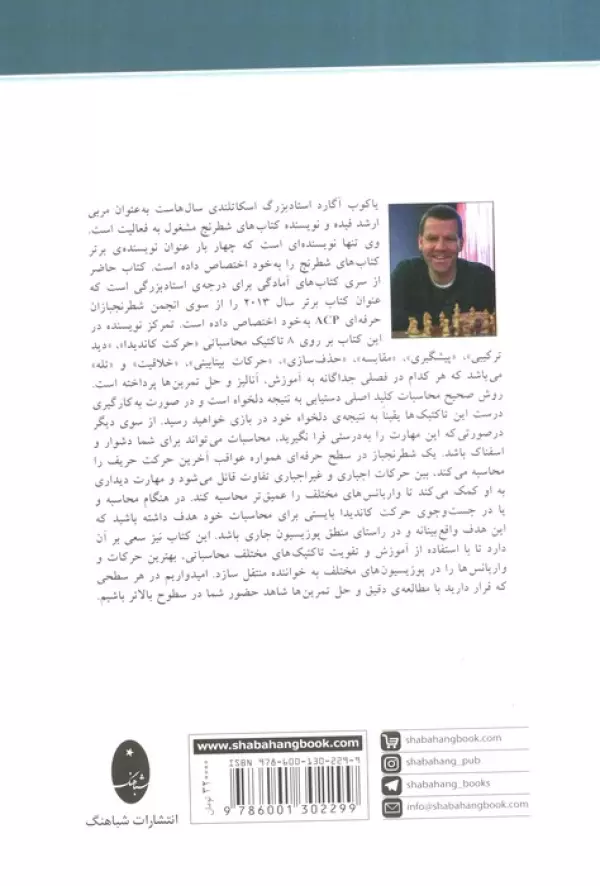 یاکوب آگارد استادبزرگ اسکاتلندی سال‌هاست به‌عنوان مربی
ارشد فیده و نویسنده کتاب‌های شطرنج مشغول به فعالیت است.
وی تنها نویسنده‌ای است که چهار بار عنوان نویسنده‌ی برتر
کتاب‌های شطرنج را به‌خود اختصاص داده است. کتاب حاضر
از سری کتاب‌های آمادگی برای درجه‌ی استادبزرگی است که
عنوان کتاب برتر سال ۲۰۱۳ را از سوی انجمن شطرنجبازان
حرفه‌ای ACP به‌خود اختصاص داده است. تمرکز نویسنده در
این کتاب بر روی ۸ تاکتیک محاسباتی «حرکت کاندیدا»، «دید
ترکیبی»، «پیشگیری»، «مقایسه»، «حذف‌سازی»، «حرکات بینابینی»، «خلاقیت» و «تله»
می‌باشد که هر کدام در فصلی جداگانه به آموزش، آنالیز و حل تمرین‌ها پرداخته است.
روش صحیح محاسبات کلید اصلی دستیابی به نتیجه دلخواه است و در صورت به‌کارگیری
درست این تاکتیک‌ها یقیناً به نتیجه‌ی دلخواه خود در بازی خواهید رسید. از سوی دیگر
درصورتی‌که این مهارت را به‌درستی فرا نگیرید، محاسبات می‌تواند برای شما دشوار و
اسفناک باشد. یک شطرنجباز در سطح حرفه‌ای همواره عواقب آخرین حرکت حریف را
محاسبه می‌کند، بین حرکات اجباری و غیراجباری تفاوت قائل می‌شود و مهارت دیداری
به او کمک می‌کند تا واریانس‌های مختلف را عمیق‌تر محاسبه کند. در هنگام محاسبه و
یا در جست‌وجوی حرکت کاندیدا بایستی برای محاسبات خود هدف داشته باشید که
این هدف واقع‌بینانه و در راستای منطق پوزیسیون جاری باشد. این کتاب نیز سعی بر آن
دارد تا با استفاده از آموزش و تقویت تاکتیک‌های مختلف محاسباتی، بهترین حرکات و
واریانس‌ها را در پوزیسیون‌های مختلف به خواننده منتقل سازد. امیدواریم در هر سطحی
که قرار دارید با مطالعه‌ی دقیق و حل تمرین‌ها شاهد حضور شما در سطوح بالاتر باشیم.
شباهنگ
انتشارات شباهنگ
www.shabahangbook.com
ISBN 978-600-130-229-9
9 786001 302299
۳۲۰۰۰۰ تومان
shabahangbook.com
shabahang_pub
shabahang_books
info@shabahangbook.com